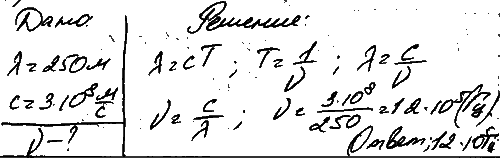 Дано
λ=250м
c=3·10⁸ м/с
ν-?
Решение:
λ=cT ; T=1/ν ; λ=c/ν
ν=c/λ ; ν=3·10⁸/250=12·10⁵(Гц)
Ответ: 12·10⁵Гц